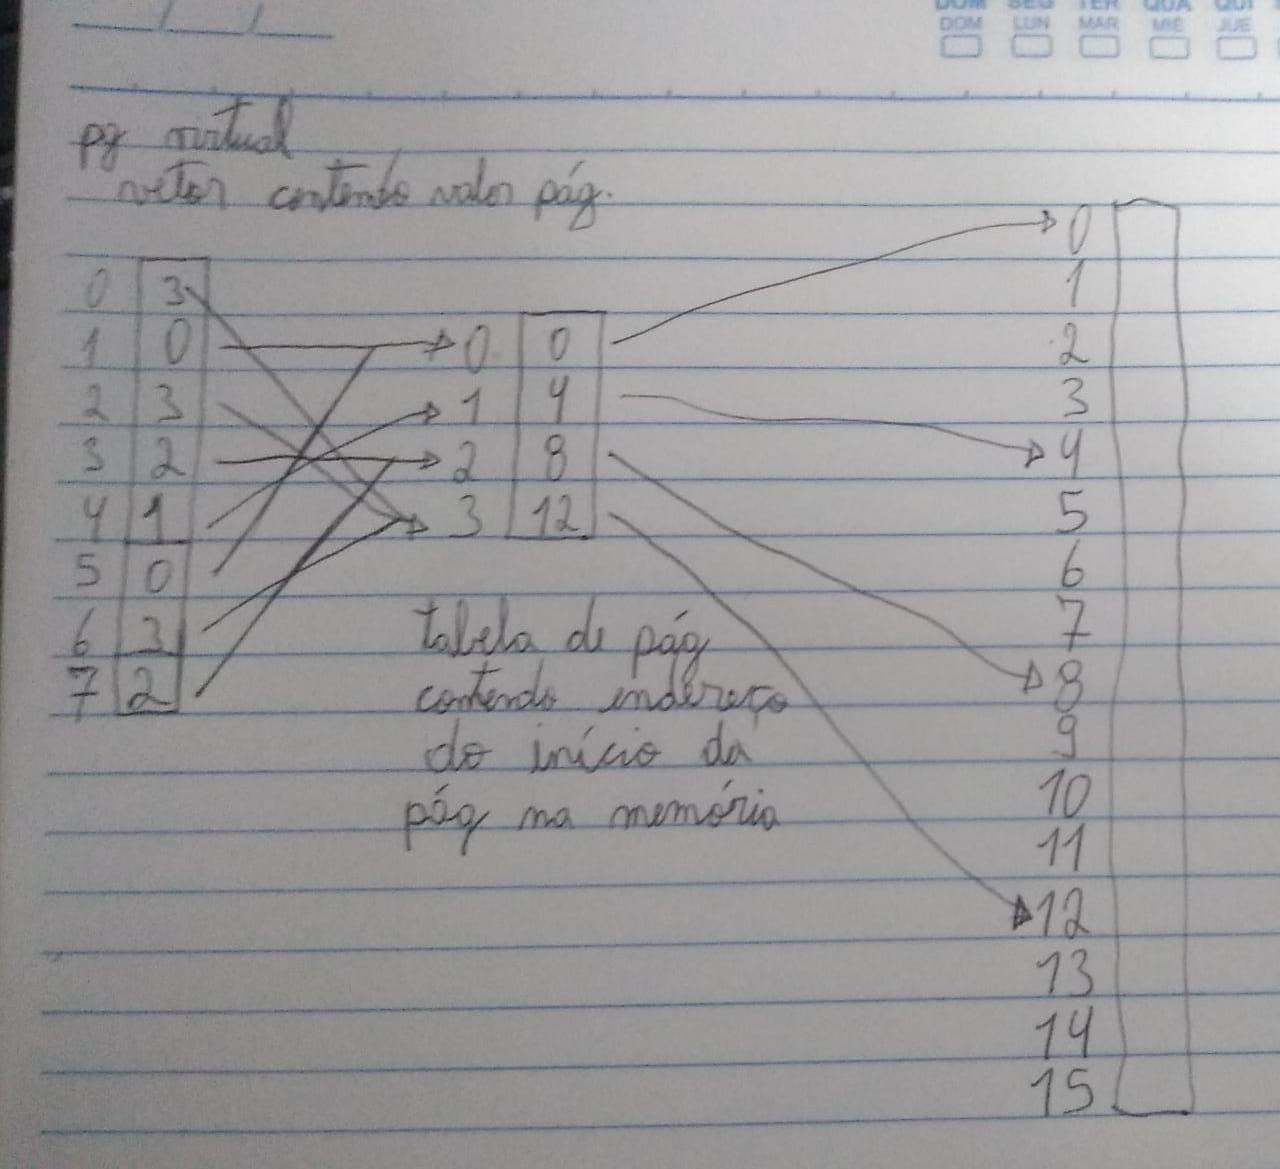 DOM SEG TER QUA QUI
DOM LUN MAR MIÉ JUE
pg virtual
vetor contendo valor pág.
0 3
1 0
2 3
3 2
4 1
5 0
6 3
7 2
0 0
1 4
2 8
3 12
tabela de pág
contendo endereço
do início da
pág na memória
0
1
2
3
4
5
6
7
8
9
10
11
12
13
14
15